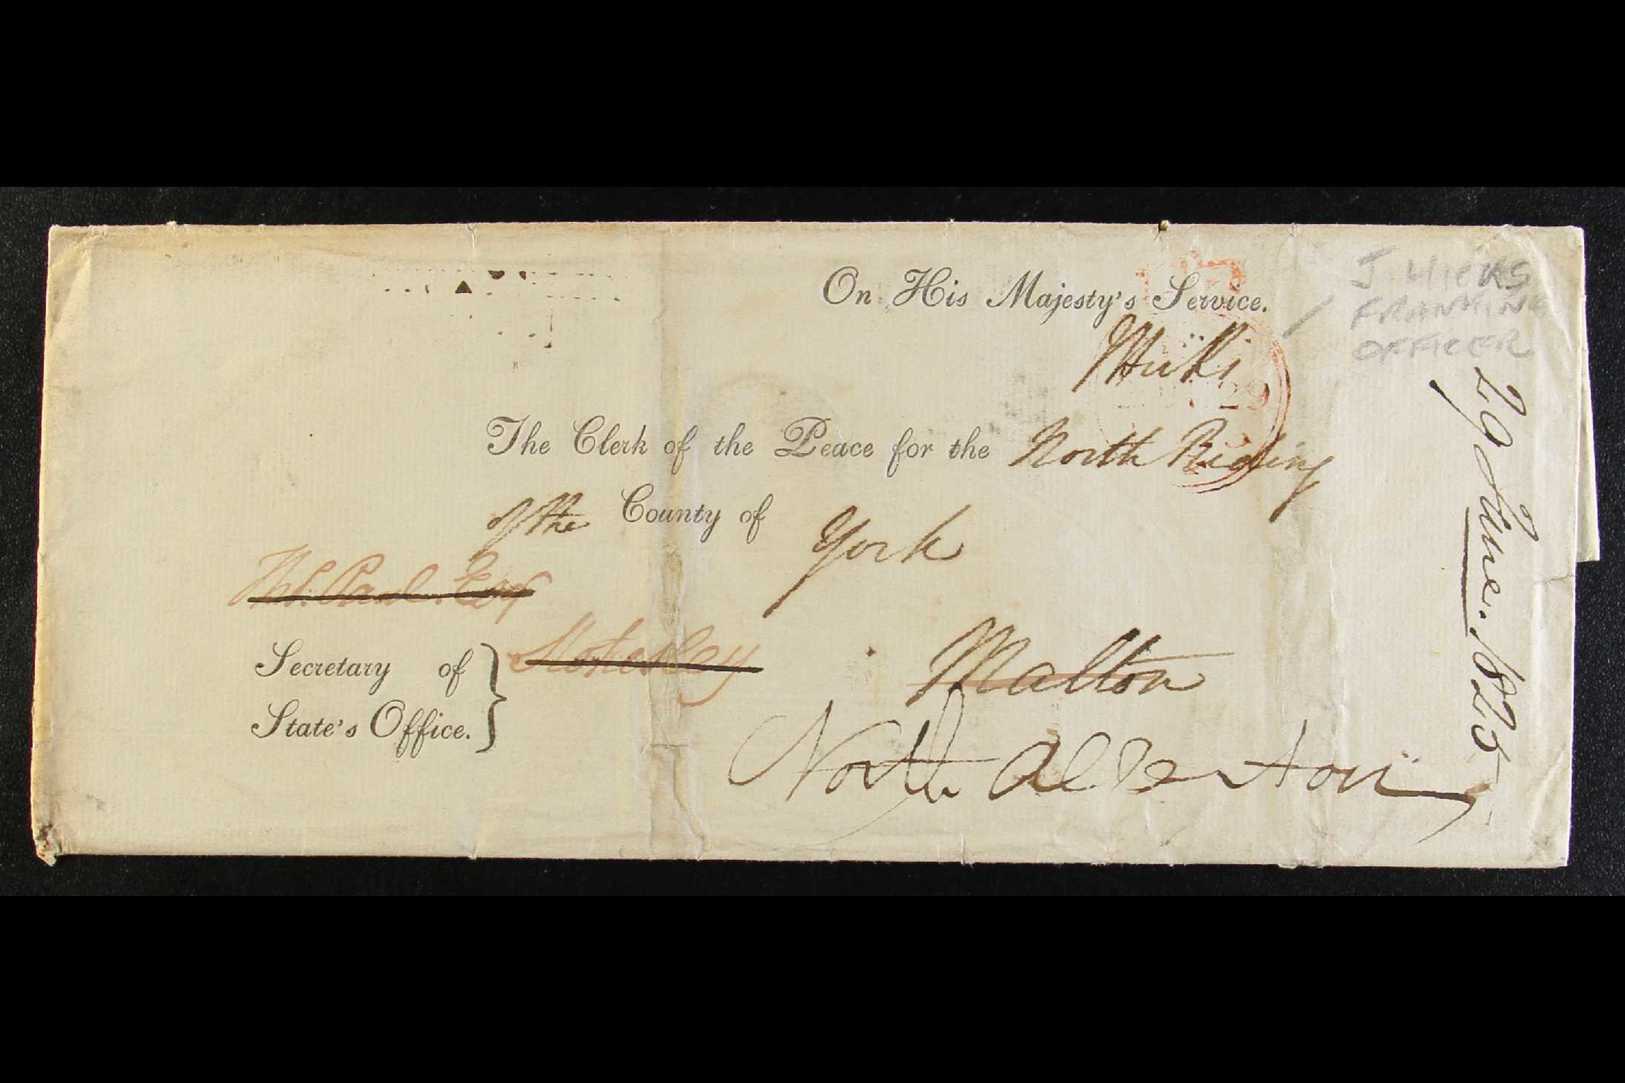 On His Majesty's Service.
J. HICKS
FRANKING
OFFICER
JHicks
29
The Clerk of the Peace for the North Riding
of the County of York
Esq
Stokesley
Secretary of
State's Office.
Malton
North Allerton
29 June. 1825